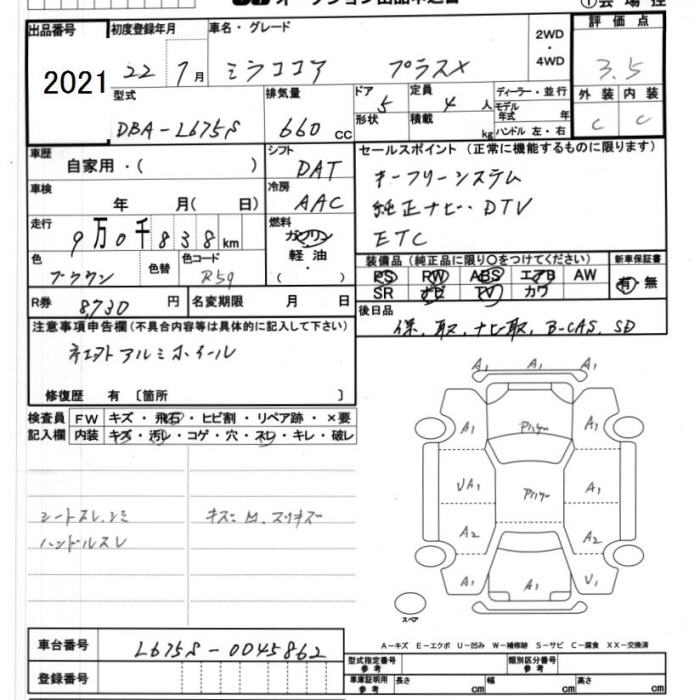 オークション出品申込書
①会場控
出品番号 初度登録年月 車名・グレード 2WD・4WD 評価点
2021 22 7月 ミラココア プラスX 3.5
型式 排気量 ドア 定員 ディーラー・並行 外装 内装
DBA-L675S 660 cc 5 4人 モデル年式 年 C C
形状 積載 kg ハンドル 左・右
車歴 シフト セールスポイント (正常に機能するものに限ります)
自家用・( ) DAT キーフリーシステム
車検 冷房
年 月( 日) AAC 純正ナビ・DTV
走行 燃料 ETC
9万0千838km ガソリン
色 色替 色コード 軽油 装備品 (純正品に限り○をつけてください) 新車保証書
ブラウン R59 ( ) PS PW ABS エアB AW 有・無
SR ナビ TV カワ
R券 8,730円 名変期限 月 日 後日品
保、取、ナビ取、B-CAS、SD
注意事項申告欄(不具合内容等は具体的に記入して下さい)
アルミホイール
修復歴 有 〔箇所 〕
検査員 FW キズ・飛石・ヒビ割・リペア跡・×要
記入欄 内装 キズ・汚レ・コゲ・穴・スレ・キレ・破レ
シートスレ、シミ キズ
ハンドルスレ
A1 A1
A1 A1
UA1 A1
A2 A2
A1 A1 U1
スペア
車台番号 L675S-0045862
A-キズ E-エクボ U-凹み W-補修跡 S-サビ C-腐食 XX-交換済
登録番号
型式指定番号 参考 類別区分番号 参考
車庫証明用 参考 長さ cm 幅 cm 高さ cm